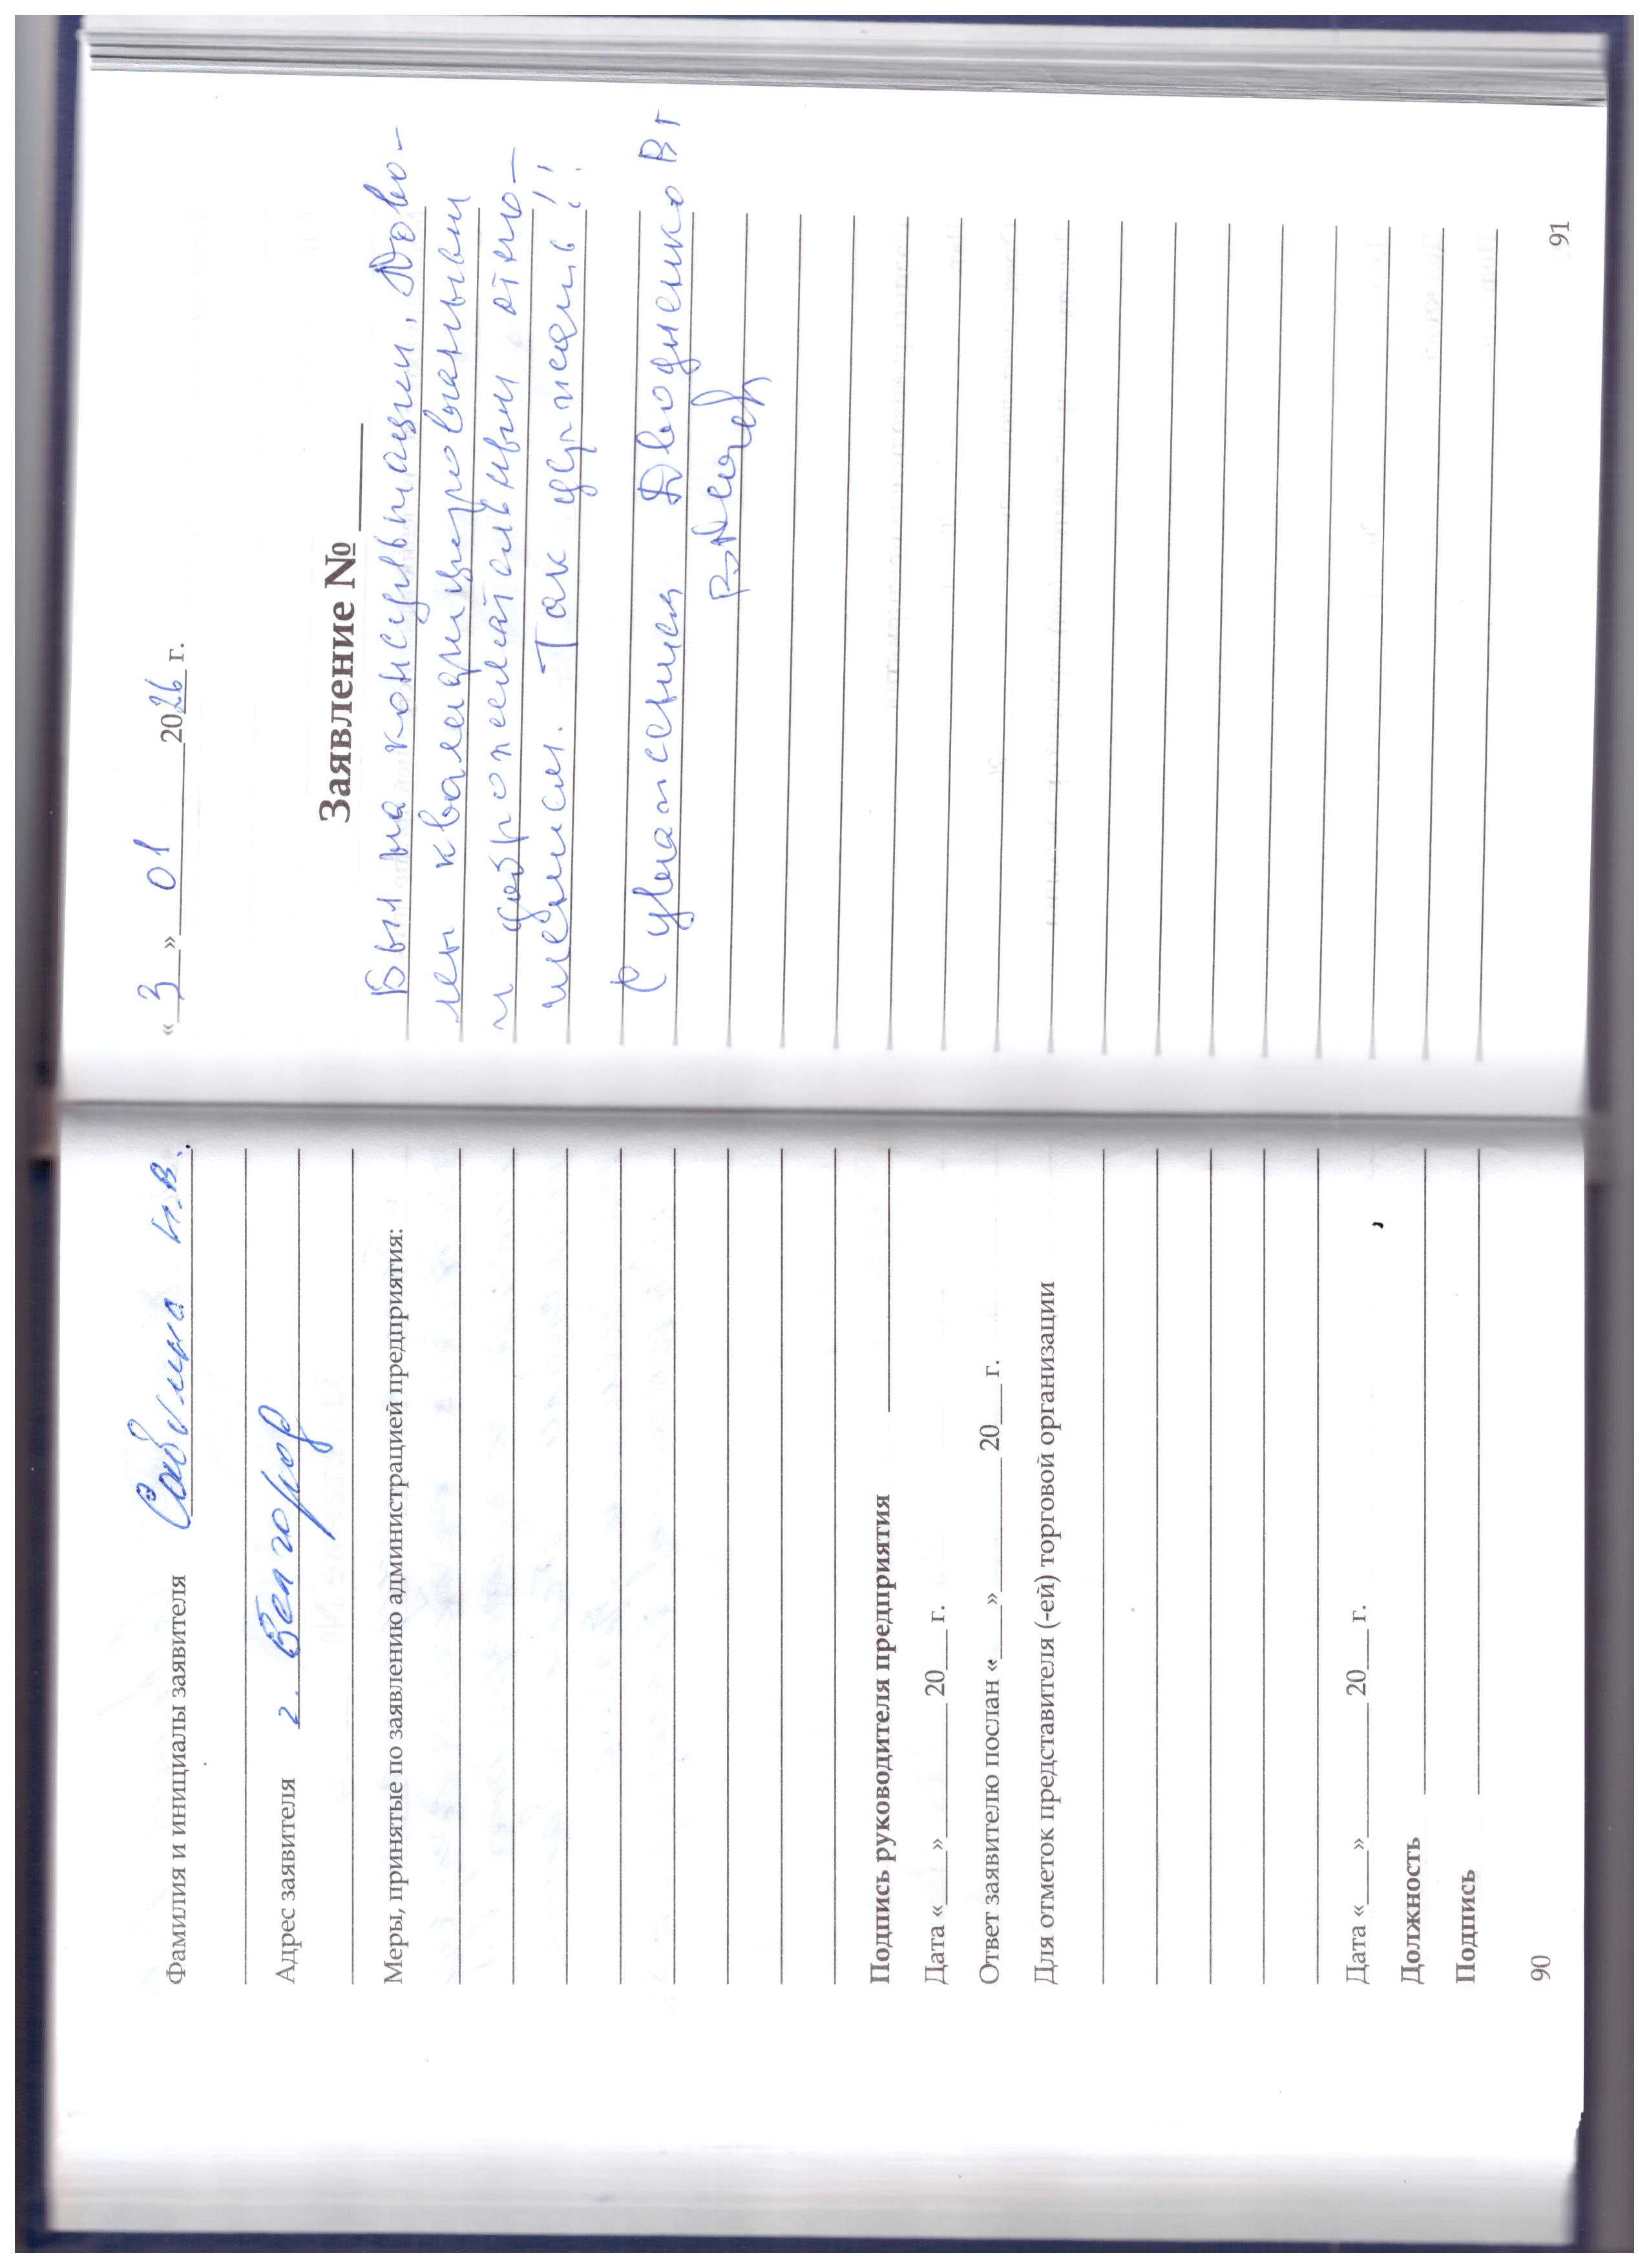 Фамилия и инициалы заявителя Соболина И.В.
Адрес заявителя г. Белгород
Меры, принятые по заявлению администрацией предприятия:
Подпись руководителя предприятия ______
Дата «___»________ 20___ г.
Ответ заявителю послан «___»________ 20___ г.
Для отметок представителя (-ей) торговой организации
Дата «___»________ 20___ г.
Должность ______
Подпись ______
90
« 3 » 01 2026 г.
Заявление № ____
Был на консультации. Дово-
лен квалифицированным
и доброжелательным отно-
шением. Так держать!!
С уважением Дводненко ВГ
91